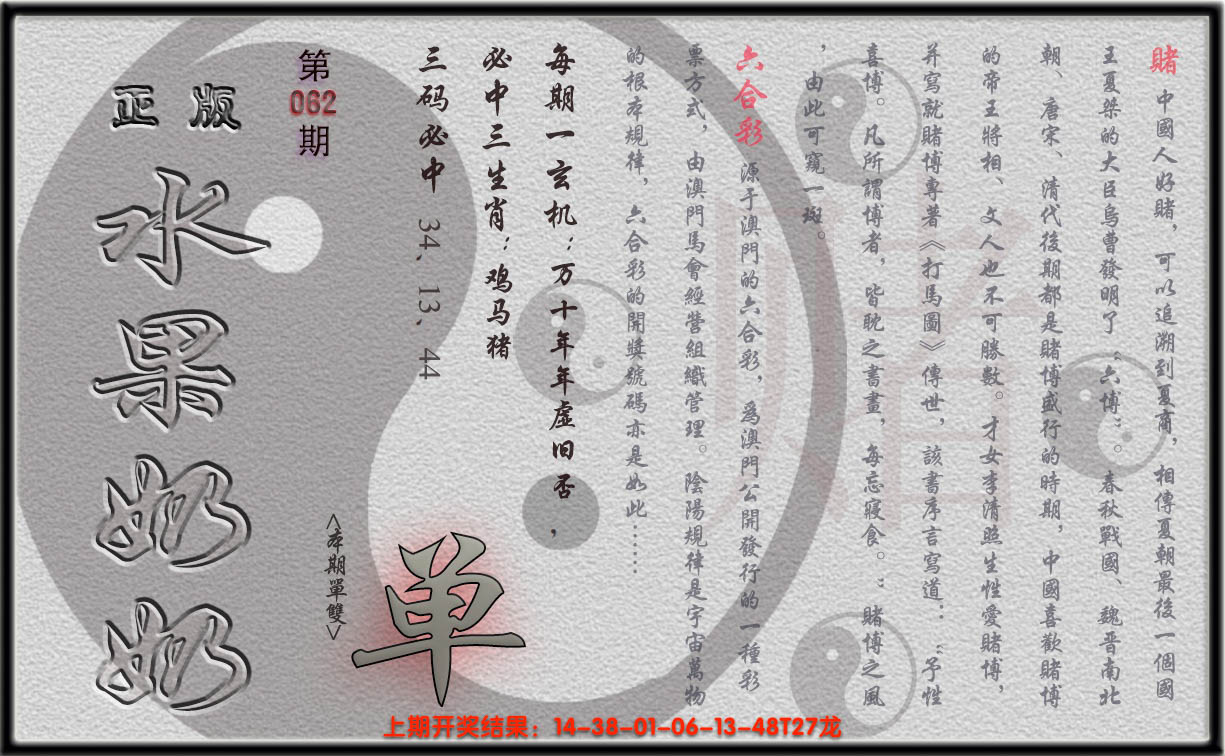 賭 中國人好賭，可以追溯到夏商，相傳夏朝最後一個國
王夏桀的大臣烏曹發明了“六博”。春秋戰國、魏晋南北
朝、唐宋、清代後期都是賭博盛行的時期，中國喜歡賭博
的帝王將相、文人也不可勝數。才女李清照生性愛賭博，
并寫就賭博專著《打馬圖》傳世，該書序言寫道：“予性
喜博。凡所謂博者，皆耽之書畫，每忘寢食。”賭博之風
，由此可窺一斑。
六合彩 源于澳門的六合彩，爲澳門公開發行的一種彩
票方式，由澳門馬會經營組織管理。陰陽規律是宇宙萬物
的根本規律，六合彩的開獎號碼亦是如此……
每期一玄机：万十年年虚旧否，
必中三生肖：鸡马猪
三码必中 34、13、44
<本期單雙>
单
第
062
期
正版
水果奶奶
赌
上期开奖结果：14-38-01-06-13-48T27龙